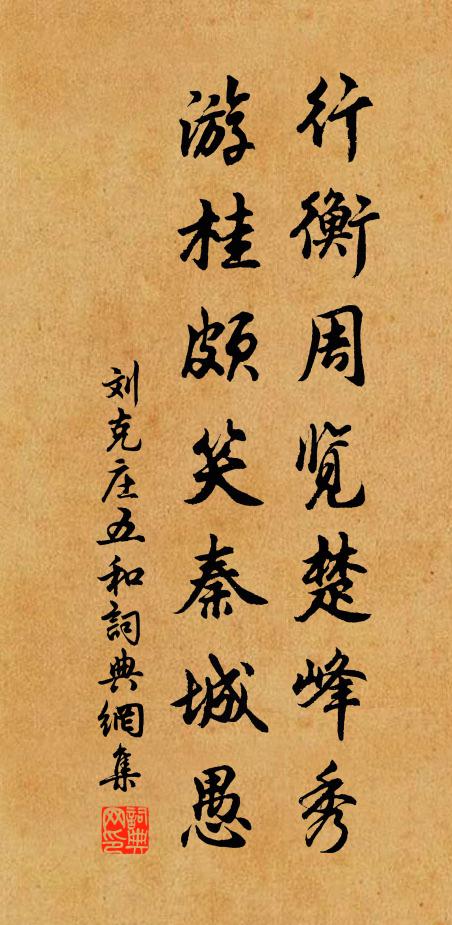 行衡周览楚峰秀
游桂颇笑秦城愚
刘克庄五和詞典網集
詞典網印